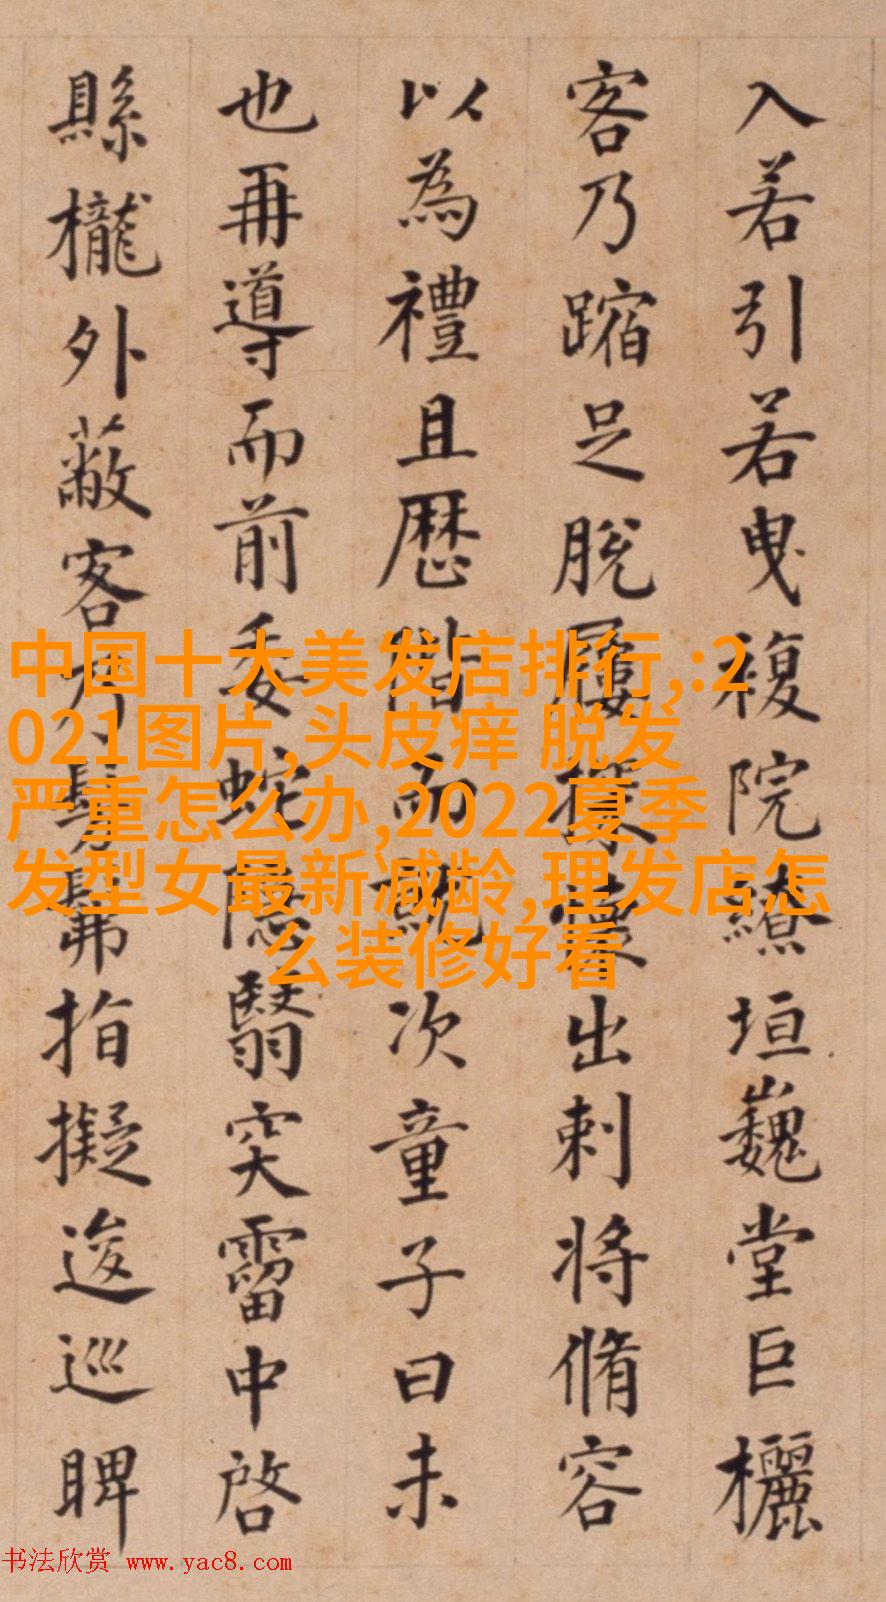 入若引若曳複院繚垣巍堂巨欐
客乃蹜足脫屨探懷出刺將脩容
以為禮且歷階而就次童子曰未
也再導而前委蛇隱翳突霤中啓
縣櫳外蔽客方髣髴指擬逡巡睥
中国十大美发店排行,:2
021图片,头皮痒 脱发
严重怎么办,2022夏季
发型女最新减龄,理发店怎
么装修好看
书法欣赏 www.yac8.com